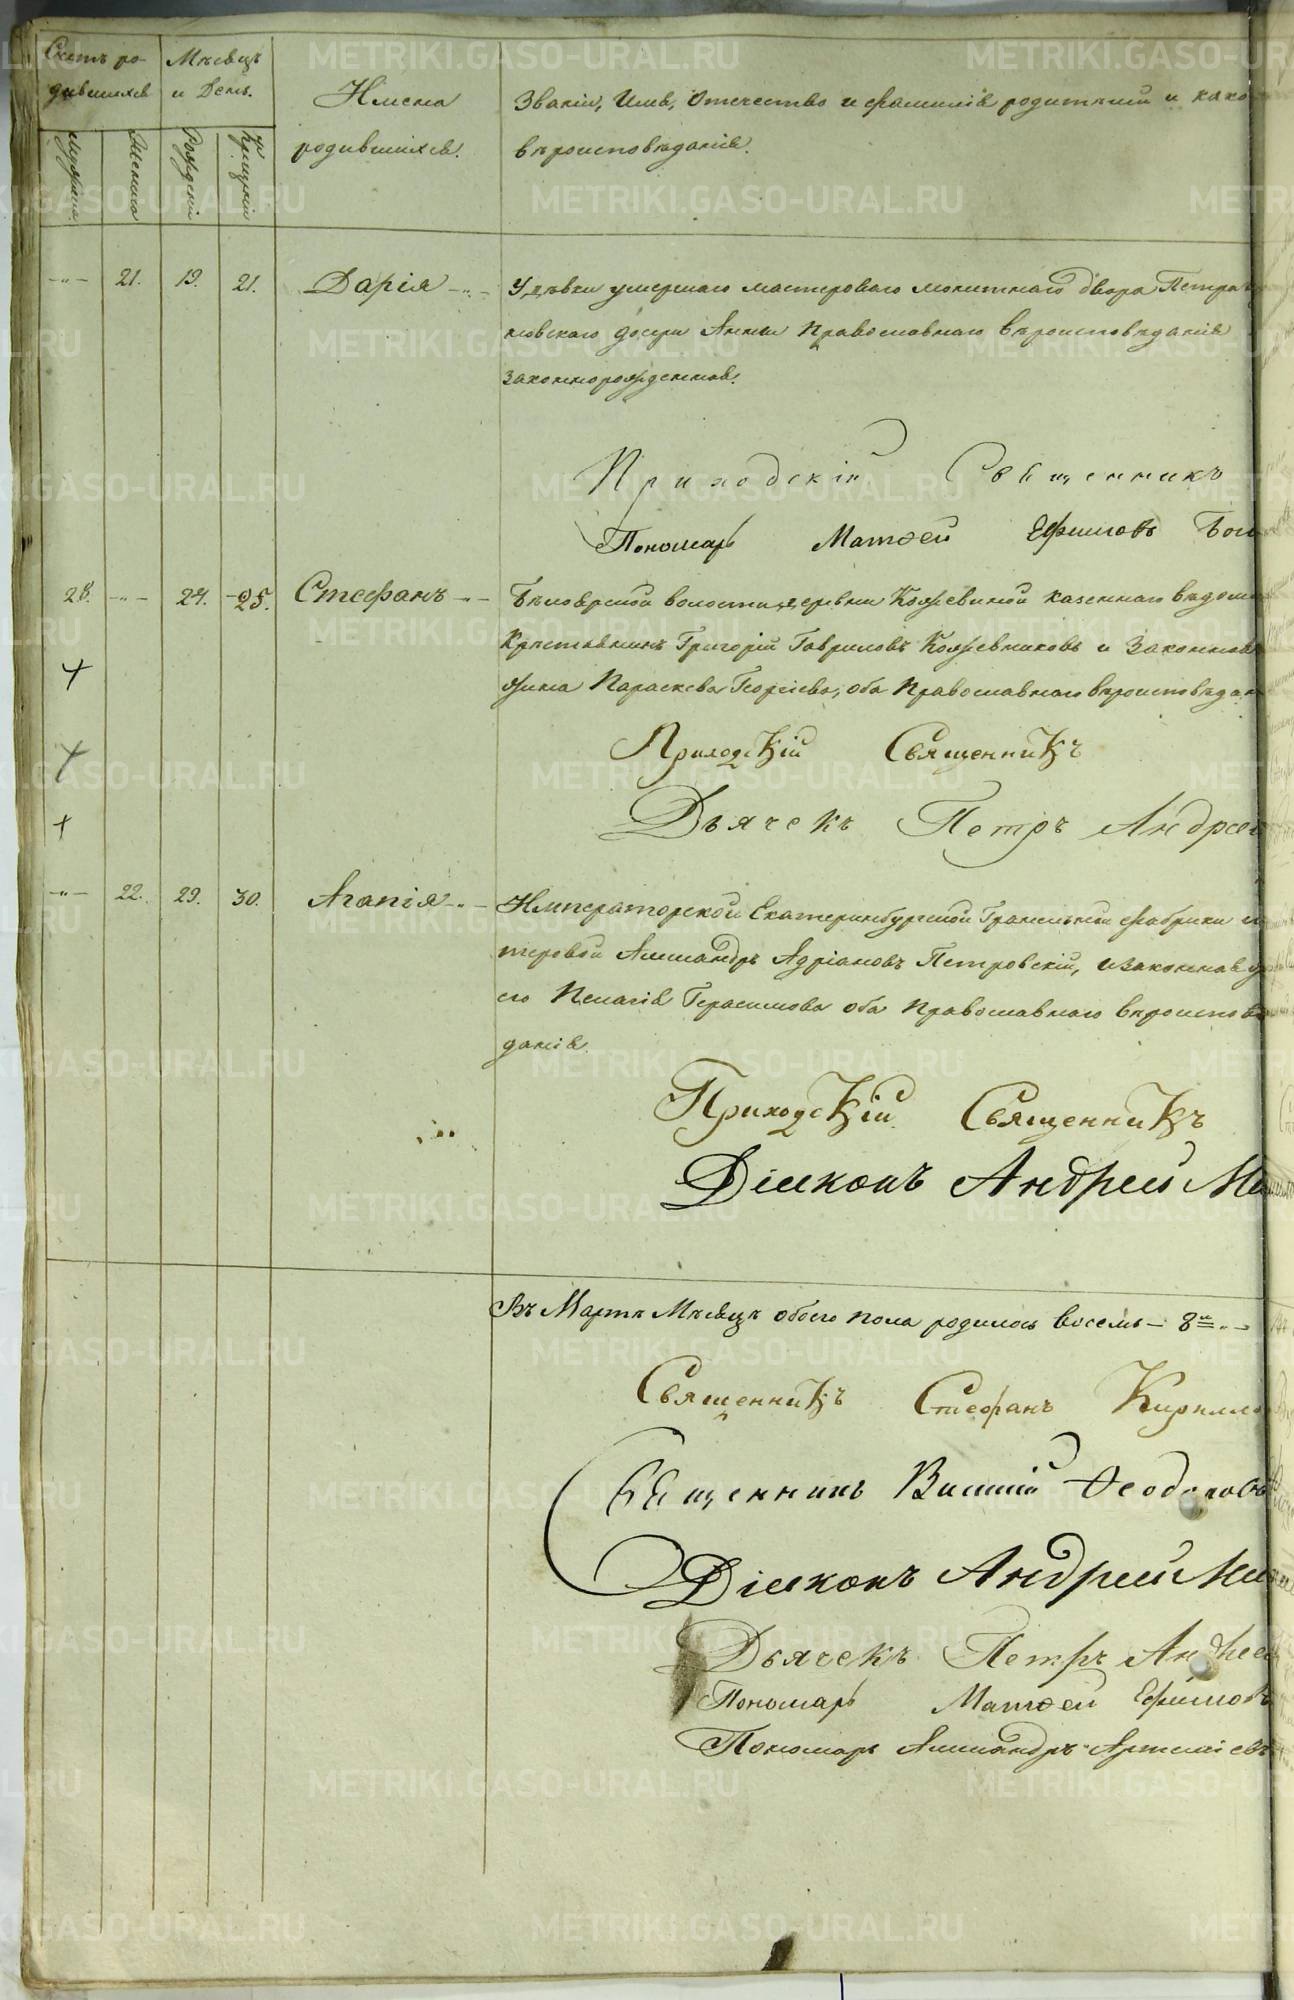 Счетъ ро-
дившихся
Мѣсяцъ
и День.
Имена
родившихся.
Званіе, Имя, Отечество и фамилія родителей и како
вѣроисповѣданія.
мужеска
Женска
Рожденія
Крещенія
21. 19. 21. Дарія
У дѣвки умершаго мастероваго монетнаго двора Петра
ковскаго дочери Анны Православнаго вѣроисповѣданія
Законнорожденная.
Приходскій Священникъ
Пономарь Матѳей Ефимовъ
28. 24. 25. Стефанъ
Бѣлоярской волости, деревни Кожевиной казеннаго вѣдом
Крестьянинъ Григорій Гавриловъ Кожевниковъ и Законная
жина Параскева Георгіева, оба Православнаго вѣроисповѣдан
Приходскій Священникъ
Дьячекъ Петръ Андрее
22. 29. 30. Агапія
Императорской Екатеринбургской Гранильной фабрики
теровой Александръ Адріановъ Петровскій, и законная
его Пелагія Герасимова оба Православнаго вѣроиспов
данія.
Приходскій Священникъ
Діаконъ Андрей Ми
Въ Мартѣ Мѣсяцѣ обоего пола родилось восемь – 8
Священникъ Стефанъ Кирилло
Священникъ Василій Ѳеодоровъ
Діаконъ Андрей Ми
Дьячекъ Петръ Андрее
Пономарь Матѳей Ефимовъ
Пономарь Александръ Артемьевъ
METRIKI.GASO-URAL.RU